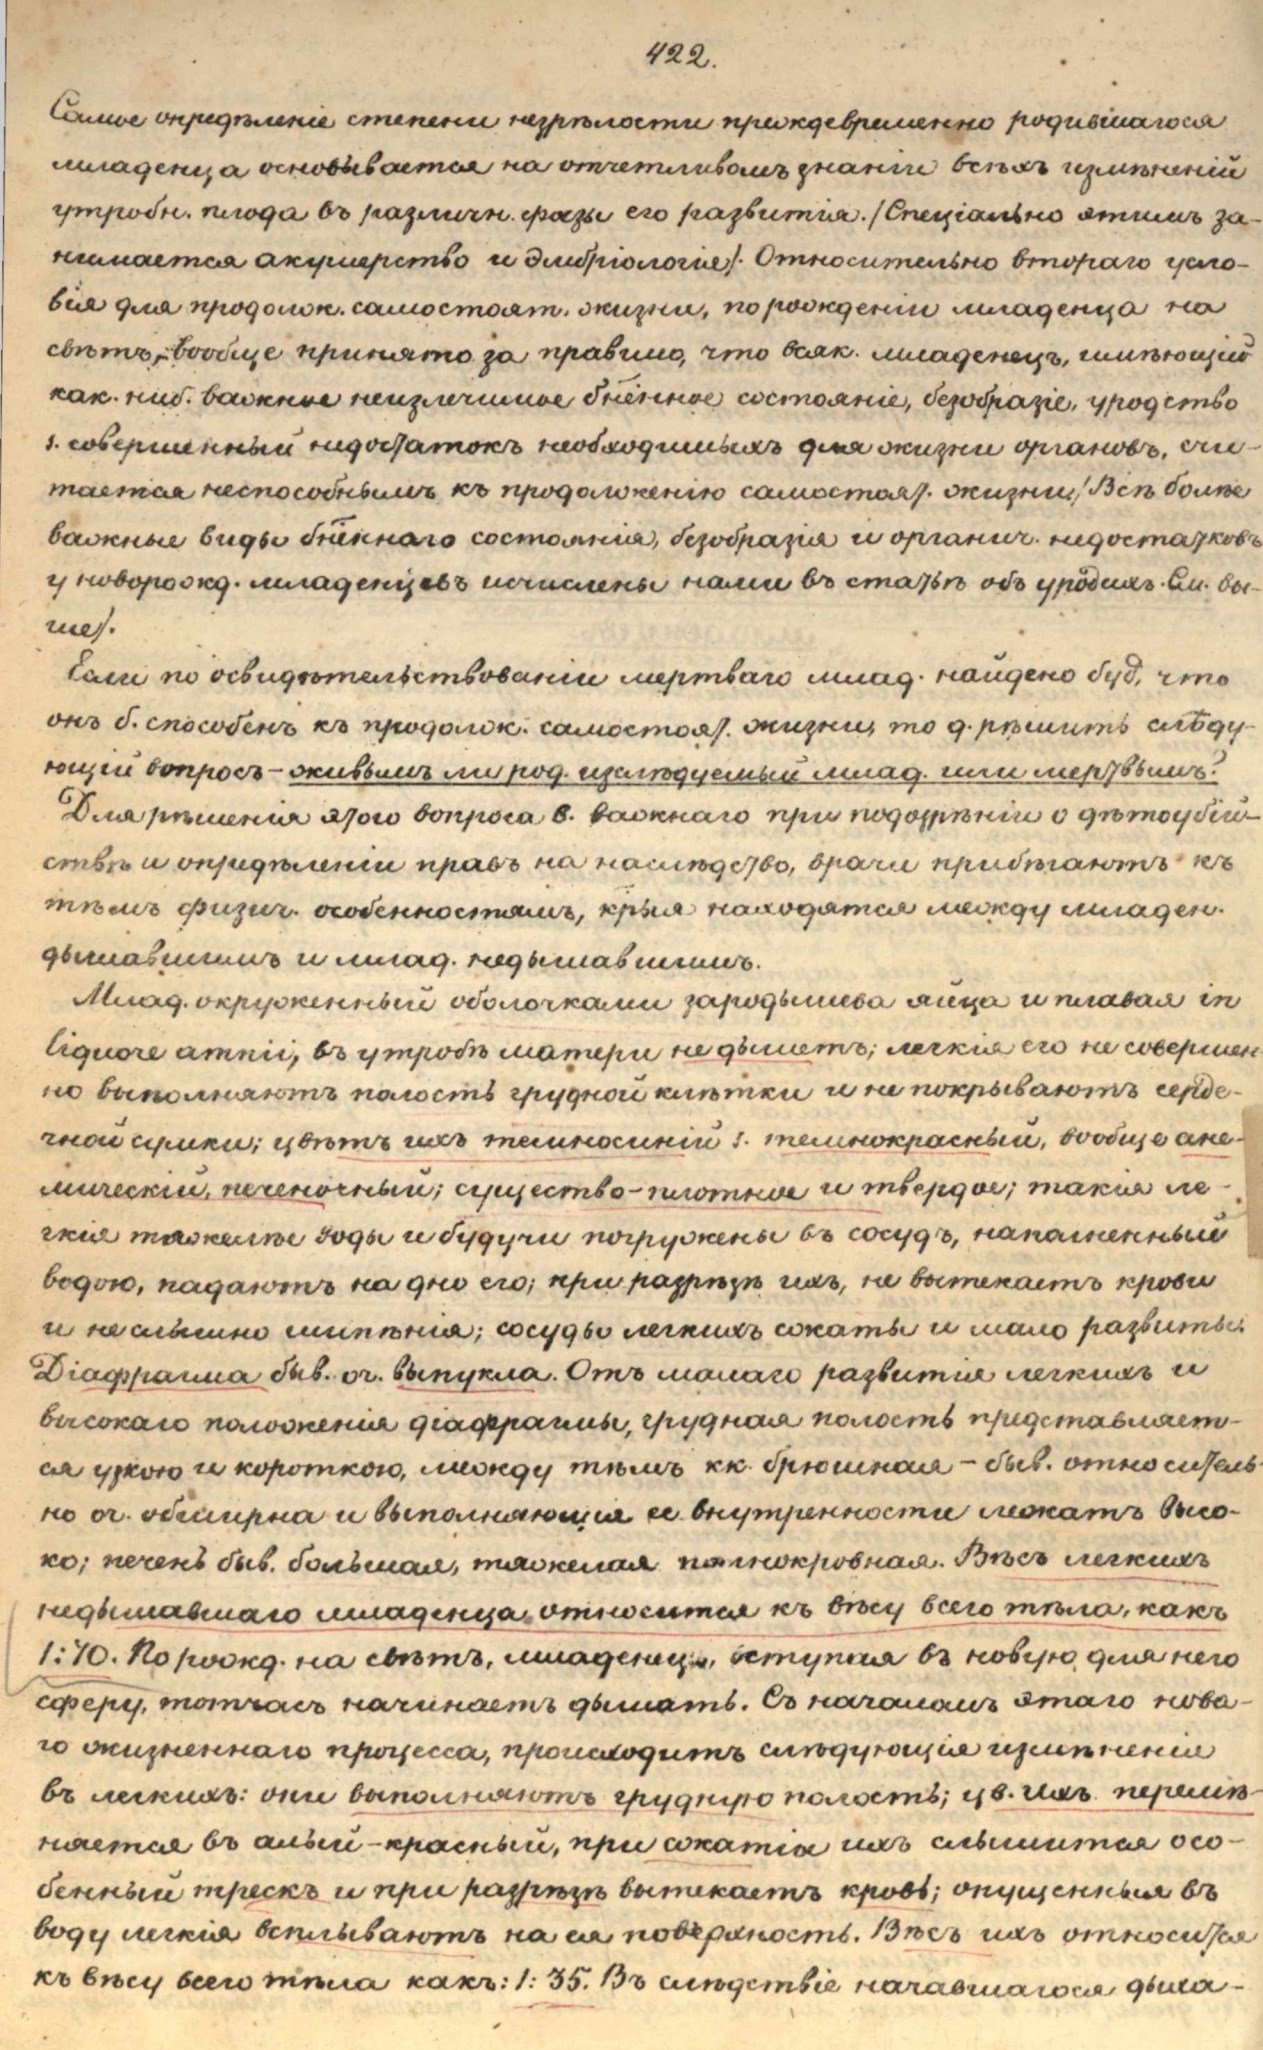 422.
Самое опредѣленіе степени незрѣлости преждевременно родившагося
младенца основывается на отчетливомъ знаніи всѣхъ измѣненій
утробн. плода въ различн. фазы его развитія. /Спеціально этимъ за-
нимается акушерство и эмбріологія/. Относительно втораго усло-
вія для продолж. самостоят. жизни, по рожденіи младенца на
свѣтъ, вообще принято за правило, что всяк. младенецъ, имѣющій
как. ниб. важное неизлечимое бнѣнное состояніе, безобразіе, уродство
s. совершенный недостатокъ необходимыхъ для жизни органовъ, счи-
тается неспособнымъ къ продолженію самостоят. жизни /Всѣ болѣе
важные виды бнѣннаго состоянія, безобразія и органич. недостатковъ
у новорожд. младенцевъ исчислены нами въ статьѣ объ уродахъ. См. вы-
ше/.
Если по освидѣтельствованіи мертваго млад. найдено буд, что
онъ б. способенъ къ продолж. самостоят. жизни, то д. рѣшить слѣду-
ющій вопросъ – живымъ ли род. изслѣдуемый млад. или мертвымъ?
Для рѣшенія этого вопроса в. важнаго при подозрѣніи о дѣтоубій-
ствѣ и опредѣленіи правъ на наслѣдство, врачи прибѣгаютъ къ
тѣмъ физич. особенностямъ, крыя находятся между младен.
дышавшимъ и млад. недышавшимъ.
Млад. окруженный оболочками зародышева яйца и плавая in
liquore amnii, въ утробѣ матери не дышетъ; легкія его не совершен-
но выполняютъ полость грудной клѣтки и не покрываютъ серде-
чной сумки; цвѣтъ ихъ темносиній s. темнокрасный, вообще ане-
мическій, печеночный; существо – плотное и твердое; такія ле-
гкія тяжелѣе воды и будучи погружены въ сосудъ, наполненный
водою, падаютъ на дно его; при разрѣзѣ ихъ, не вытекаетъ крови
и не слышно шипѣнія; сосуды легкихъ сжаты и мало развиты.
Діафрагма быв. оч. выпукла. Отъ малаго развитія легкихъ и
высокаго положенія діафрагмы, грудная полость представляет-
ся узкою и короткою, между тѣмъ кк брюшная – быв. относитель-
но оч. обширна и выполняющія ее внутренности лежатъ высо-
ко; печень быв. большая, тяжелая полнокровная. Вѣсъ легкихъ
недышавшаго младенца относится къ вѣсу всего тѣла, какъ
1:70. По рожд. на свѣтъ, младенецъ, вступая въ новую для него
сферу, тотчасъ начинаетъ дышать. Съ началомъ этаго нова-
го жизненнаго процесса, происходитъ слѣдующія измѣненія
въ легкихъ: они выполняютъ грудную полость; цв. ихъ перемѣ-
няется въ алый-красный, при сжатіи ихъ слышится осо-
бенный трескъ и при разрѣзѣ вытекаетъ кровь; опущенныя въ
воду легкія всплываютъ на ея поверхность. Вѣсъ ихъ относится
къ вѣсу всего тѣла какъ: 1: 35. Въ слѣдствіе начавшагося дыха-